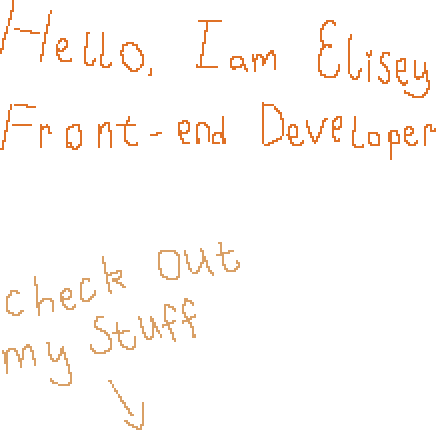 Hello, I am Elisey
Front-end Developer
check out
my stuff